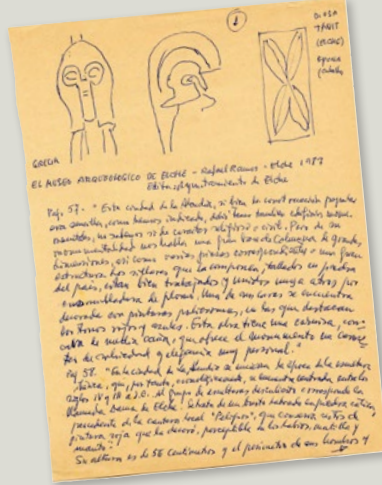 1
DIOSA
TANIT
(ELCHE)
GRECIA
EL MUSEO ARQUEOLOGICO DE ELCHE - Rafael Ramos - Elche 1987
Edita: Ayuntamiento de Elche
Pág. 57 - "Esta ciudad de la Alcudia, si bien la construcción
como hemos indicado, debió tener también edificios
no sabemos si de carácter religioso o civil. Pero de su
monumentalidad nos habla una gran basa de Columna de grandes
dimensiones, así como varias piezas correspondientes a una gran
estructura. Los sillares que la componen, tallados en piedra
del país, están bien trabajados y unidos unos a otros por
de plomo. Una de sus caras se encuentra
decorada con pinturas polícromas, en las que destacan
los tonos rojos y azules. Esta obra tiene una cornisa,
que ofrece al monumento un
de y elegancia muy personal."
Pág 58. "En la ciudad de la Alcudia se la época de la escultura
ibérica, que, por tanto, cronológicamente, se encuentra centrada entre los
siglos IV y III a.d.C. Al grupo de esculturas corresponde la
llamada Dama de Elche. Se trata de un busto labrado en piedra caliza,
procedente de la cantera local "Peligro", que conserva restos de
pintura roja que la decoró, perceptible en los labios, mantilla y
manto."
Su altura es de 56 centímetros y el perímetro de sus hombros y